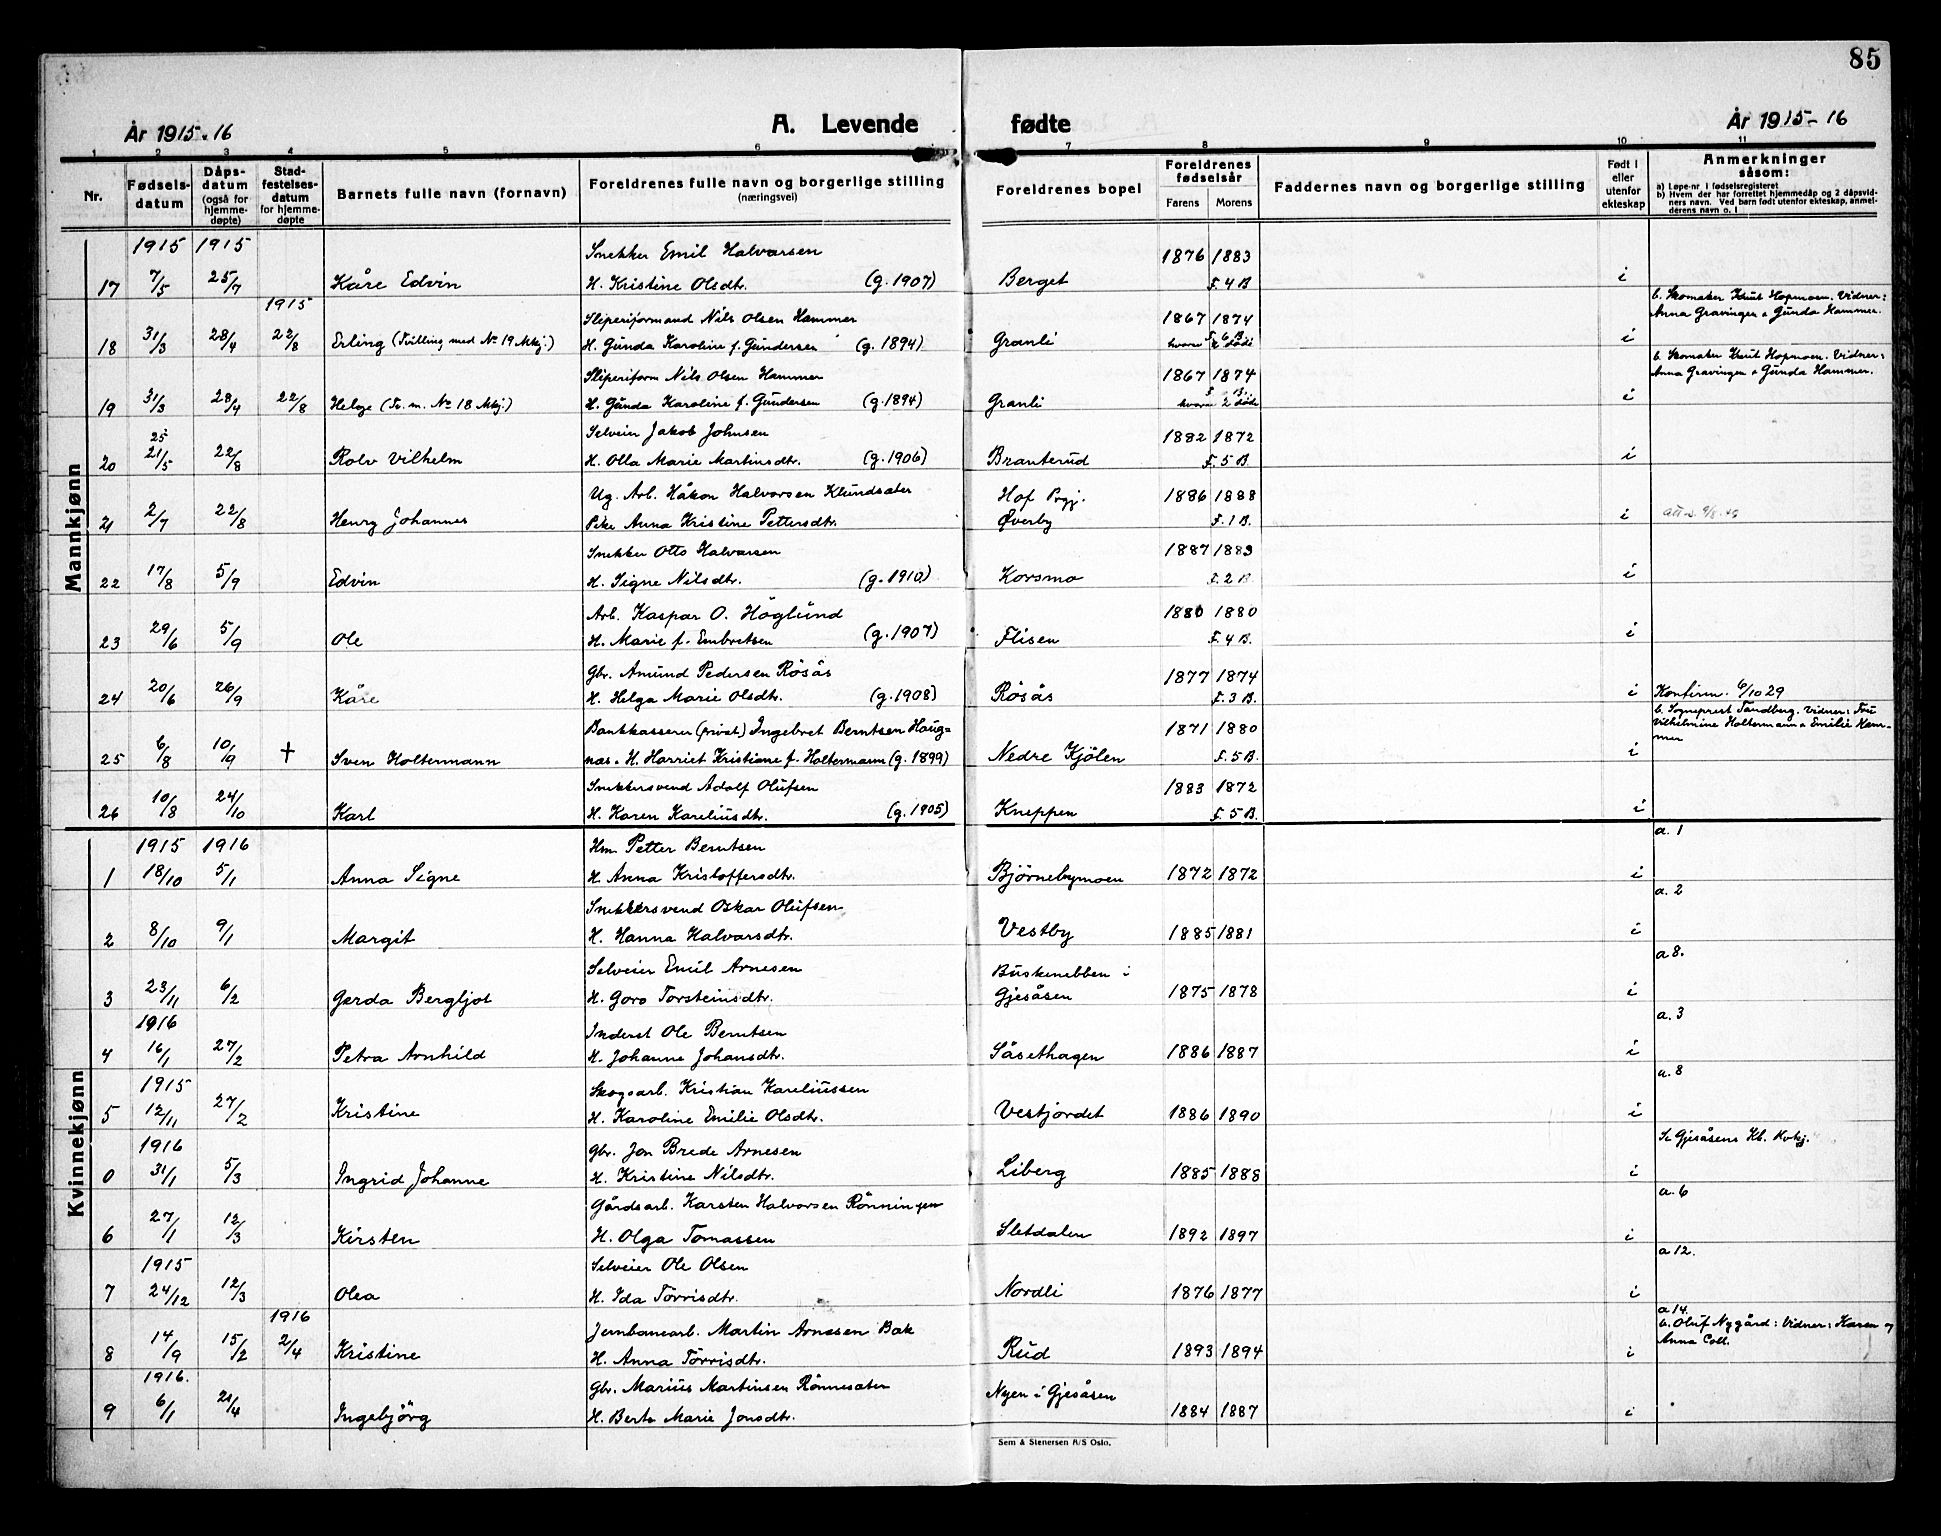 85
År 1915-16
A. Levende fødte
År 1915-16
1 2 3 4 5 6 7 8 9 10 11
Nr.
Fødsels-
datum
Dåps-
datum
(også for
hjemme-
døpte)
Stad-
festelses-
datum
for hjemme-
døpte
Barnets fulle navn (fornavn)
Foreldrenes fulle navn og borgerlige stilling
(næringsvei)
Foreldrenes bopel
Foreldrenes
fødselsår
Farens Morens
Faddernes navn og borgerlige stilling
Født i
eller
utenfor
ekteskap
Anmerkninger
såsom:
a) Løpe-nr i fødselsregisteret
b) Hvem der har forrettet hjemmedåp og 2 dåpsvid-
ners navn. Ved barn født utenfor ekteskap, anmel-
derens navn o. l
Mannkjønn
1915 1915 Snekker Emil Halvarsen 1876 1883
17 7/5 25/7 Kåre Edvin H. Kristine Olsdtr. (g. 1907) Berget F. 4 B. i
1915 Sliperiformand Nils Olsen Hammer 1867 1874 b. Skomaker Knut Hopmoen. Vidner:
Anna Gravingen & Gunda Hammer.
18 31/3 28/4 22/8 Erling (Tvilling med No 19 Mkj.) H. Gunda Karoline f. Gundersen (g. 1894) Granli F. 6 B. hvorav 2 døde i
Sliperiform Nils Olsen Hammer 1867 1874 b. Skomaker Knut Hopmoen. Vidner:
Anna Gravingen & Gunda Hammer.
19 31/3 28/4 22/8 Helge (Tv. m. No 18 Mkj.) H. Gunda Karoline f. Gundersen (g. 1894) Granli hvorav 2 døde i
25 Selveier Jakob Johnsen 1882 1872
20 21/5 22/8 Rolv Vilhelm H. Olla Marie Martinsdtr. (g. 1906) Branterud F. 5 B. i
Ug. Arb. Håkon Halvorsen Klundsæter Hof Prgj. 1886 1888
21 2/7 22/8 Henry Johannes Pike Anna Kristine Pettersdtr. Øverby F. 1 B. i
Snekker Otto Halvarsen 1887 1883
22 17/8 5/9 Edvin H. Signe Nilsdtr. (g. 1910) Korsmo F. 2 B. i
Arb. Kaspar O. Höglund 1880 1880
23 29/6 5/9 Ole H. Marie f. Embretsen (g. 1907) Flisen F. 4 B. i
Gbr. Amund Pedersen Rösås 1877 1874
24 20/6 26/9 Kåre H. Helga Marie Olsdtr. (g. 1908) Rösås F. 3 B. i Konfirm. 6/10 29
Bankkasserer (privat) Ingebret Berntsen Haug= 1871 1880 b. Sogneprest Tandberg. Vidner: Fru
Vilhelmine Holtermann & Emilie Ham-
mer
25 6/8 10/9 † Sven Holtermann næs & H. Harriet Kristiane f. Holtermann (g. 1899) Nedre Kjölen F. 5 B. i
Snekkersvend Adolf Olufsen 1883 1872
26 10/8 24/10 Karl H. Karen Kareliusdtr. (g. 1905) Kneppen F. 5 B. i
Kvinnekjønn
1915 1916 Hm. Petter Berntsen a. 1
1 18/10 5/1 Anna Signe H. Anna Kristoffersdtr. Björnebymoen 1872 1872 i
Snekkersvend Oskar Olufsen a. 2
2 8/10 9/1 Margit H. Hanna Halvarsdtr. Vestby 1885 1881 i
Selveier Emil Arnesen Buskenebben i a 8.
3 23/11 6/2 Gerda Bergljot H. Goro Torsteinsdtr. Gjesåsen 1875 1878 i
1916 Inderst Ole Berntsen a. 3
4 16/1 27/2 Petra Arnhild H. Johanne Johansdtr. Såsethagen 1886 1887 i
1915 Skogsarb. Kristian Kareliussen a. 8
5 12/11 27/2 Kristine H. Karoline Emilie Olsdtr. Vestjordet 1886 1890 i
1916 Gbr. Jon Brede Arnesen Se Gjesåsens Kb. Kvkj.
0 31/1 5/3 Ingrid Johanne H. Kristine Nilsdtr. Liberg 1885 1888 i
Gårdsarb. Karsten Halvorsen Rönningen a. 6
6 27/1 12/3 Kirsten H. Olga Tomassen Sletdalen 1892 1897 i
1915 Selveier Ole Olsen a 12.
7 24/12 12/3 Olea H. Ida Törrisdtr. Nordli 1876 1877 i
1916 Jernbanearb. Martin Arnesen Bak a 14.
b. Oluf Nygård: Vidner: Karen og
Anna Coll.
8 14/9 15/2 2/4 Kristine H. Anna Törrisdtr. Rud 1893 1894 i
1916. Gbr. Marius Martinsen Rönnesæter Nyen i Gjesåsen
9 6/1 21/4 Ingebjörg H. Berte Marie Jonsdtr. 1884 1887 i
Sem & Stenersen A/S Oslo.